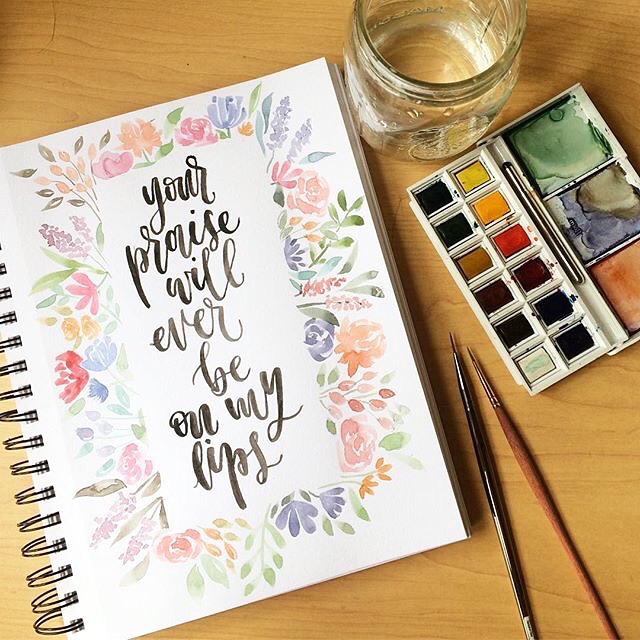 your
praise
will
ever
be
on my
lips